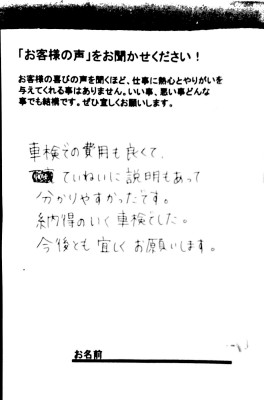 「お客様の声」をお聞かせください！
お客様の喜びの声を聞くほど、仕事に熱心とやりがいを
与えてくれる事はありません。いい事、悪い事どんな
事でも結構です。ぜひ宜しくお願いします。
車検での費用も良くて、
ていねいに説明もあって
分かりやすかったです。
納得のいく車検でした。
今後とも宜しくお願いします。
お名前